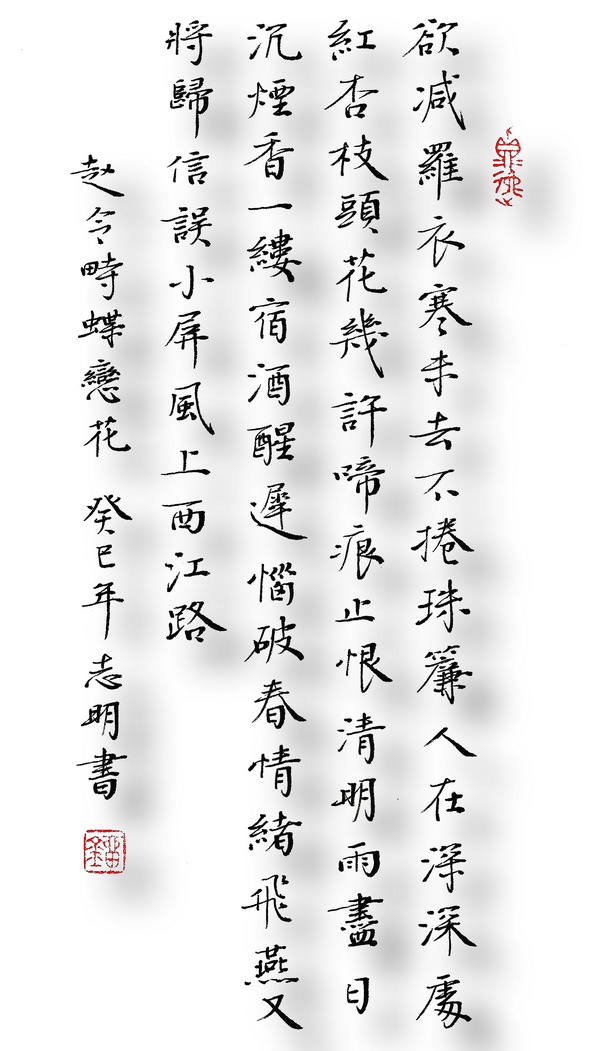 欲減羅衣寒未去不捲珠簾人在深深處
紅杏枝頭花幾許啼痕止恨清明雨盡日
沉煙香一縷宿酒醒遲惱破春情緒飛燕又
將歸信誤小屏風上西江路
赵令畤蝶戀花 癸巳年志明書